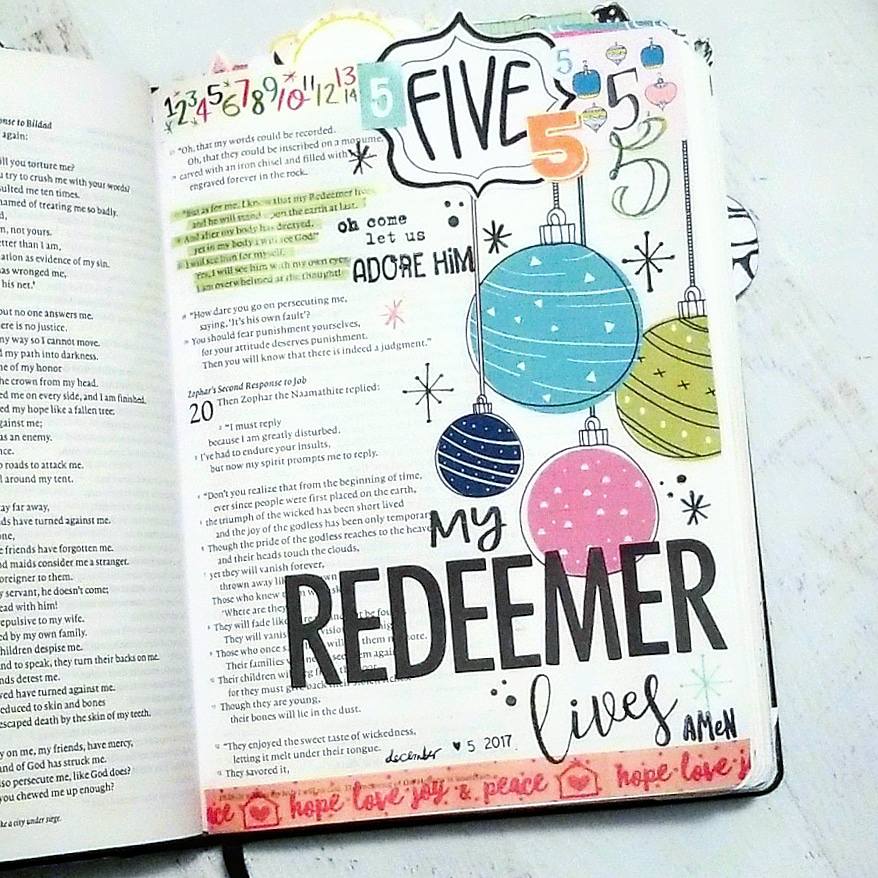 onse to Bildad
again:
ill you torture me?
u try to crush me with your words?
sulted me ten times.
hamed of treating me so badly.
d,
n, not yours.
etter than I am,
ation as evidence of my sin.
as wronged me,
his net.
out no one answers me.
ere is no justice.
my way so I cannot move.
d my path into darkness.
ne of my honor
he crown from my head.
ed me on every side, and I am finished.
ed my hope like a fallen tree.
gainst me;
as an enemy.
ce.
o roads to attack me.
l around my tent.
ay far away,
ds have turned against me.
one,
e friends have forgotten me.
nd maids consider me a stranger.
oreigner to them.
y servant, he doesn't come;
ead with him!
epulsive to my wife.
ed by my own family.
hildren despise me.
nd to speak, they turn their backs on me.
nds detest me.
ved have turned against me.
educed to skin and bones
escaped death by the skin of my teeth.
y on me, my friends, have mercy,
nd of God has struck me.
so persecute me, like God does?
you chewed me up enough?
ke a city under siege.
1 2 3 4 5 6 7 8 9 10 11 12 13 14
5
FIVE
5
5
5
5
"Oh, that my words could be recorded.
Oh, that they could be inscribed on a monume
carved with an iron chisel and filled with
engraved forever in the rock.
"But as for me, I know that my Redeemer lives,
and he will stand upon the earth at last.
And after my body has decayed,
yet in my body I will see God!
I will see him for myself.
Yes, I will see him with my own eyes.
I am overwhelmed at the thought!
oh come
let us
ADORE HiM
"How dare you go on persecuting me,
saying, 'It's his own fault'?
You should fear punishment yourselves,
for your attitude deserves punishment.
Then you will know that there is indeed a judgment."
Zophar's Second Response to Job
20 Then Zophar the Naamathite replied:
"I must reply
because I am greatly disturbed.
I've had to endure your insults,
but now my spirit prompts me to reply.
"Don't you realize that from the beginning of time,
ever since people were first placed on the earth,
the triumph of the wicked has been short lived
and the joy of the godless has been only temporary
Though the pride of the godless reaches to the heave
and their heads touch the clouds,
yet they will vanish forever,
thrown away like
Those who knew
'Where are they
They will fade like
They will vanis
Those who once
Their families
Their children
for they must give back their
Though they are young,
their bones will lie in the dust.
"They enjoyed the sweet taste of wickedness,
letting it melt under their tongue.
They savored it,
MY
REDEEMER
lives
AMeN
december ♥ 5 2017.
ce hope love joy & peace hope love j